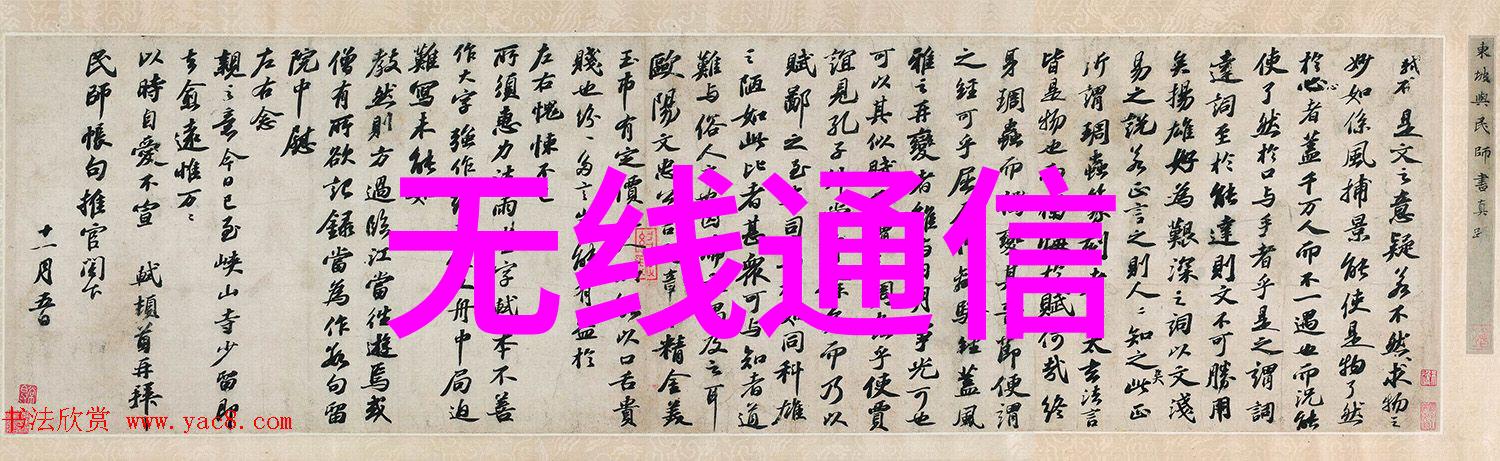 東坡與民師書真
是文之意疑若不然求物之
妙如係風捕景能使是物了然
於心者蓋千万人而不一遇也而況能
使了然於口与手者乎是之謂詞
達詞至於能達則文不可勝用
矣揚雄好為艱深之詞以文淺
易之說若正言之則人〻知之此正
所謂琱蟲篆刻者太玄法言
皆是物也而獨悔於賦何哉終
身琱蟲而獨變其音節便謂
之經可乎屈原作離騷經蓋風
雅之再變者雖与日月爭光可也
可以其似賦而謂之琱蟲乎使賈
誼見孔子升堂有餘矣而乃以
賦鄙之至司馬相如同科雄
之陋如此比者甚衆可与知者道
難与俗人言也因論文偶及之耳
歐陽文忠公言文章精金美
玉市有定價非人所能以口舌貴
賤也紛〻多言豈能有益於
左右愧悚不已
所須惠力法雨堂字軾本不善
作大字強作終不佳又舟中局迫
難寫未能如
教然則方過臨江當往遊焉或
僧有所欲記錄當為作數句留
院中慰
左右念
親之意今日已至峽山寺少留即
去愈遠惟万〻
以時自愛不宣 軾頓首再拜
民師帳句推官閣下
十一月五日
无线通信
书法欣赏 www.yac8.com